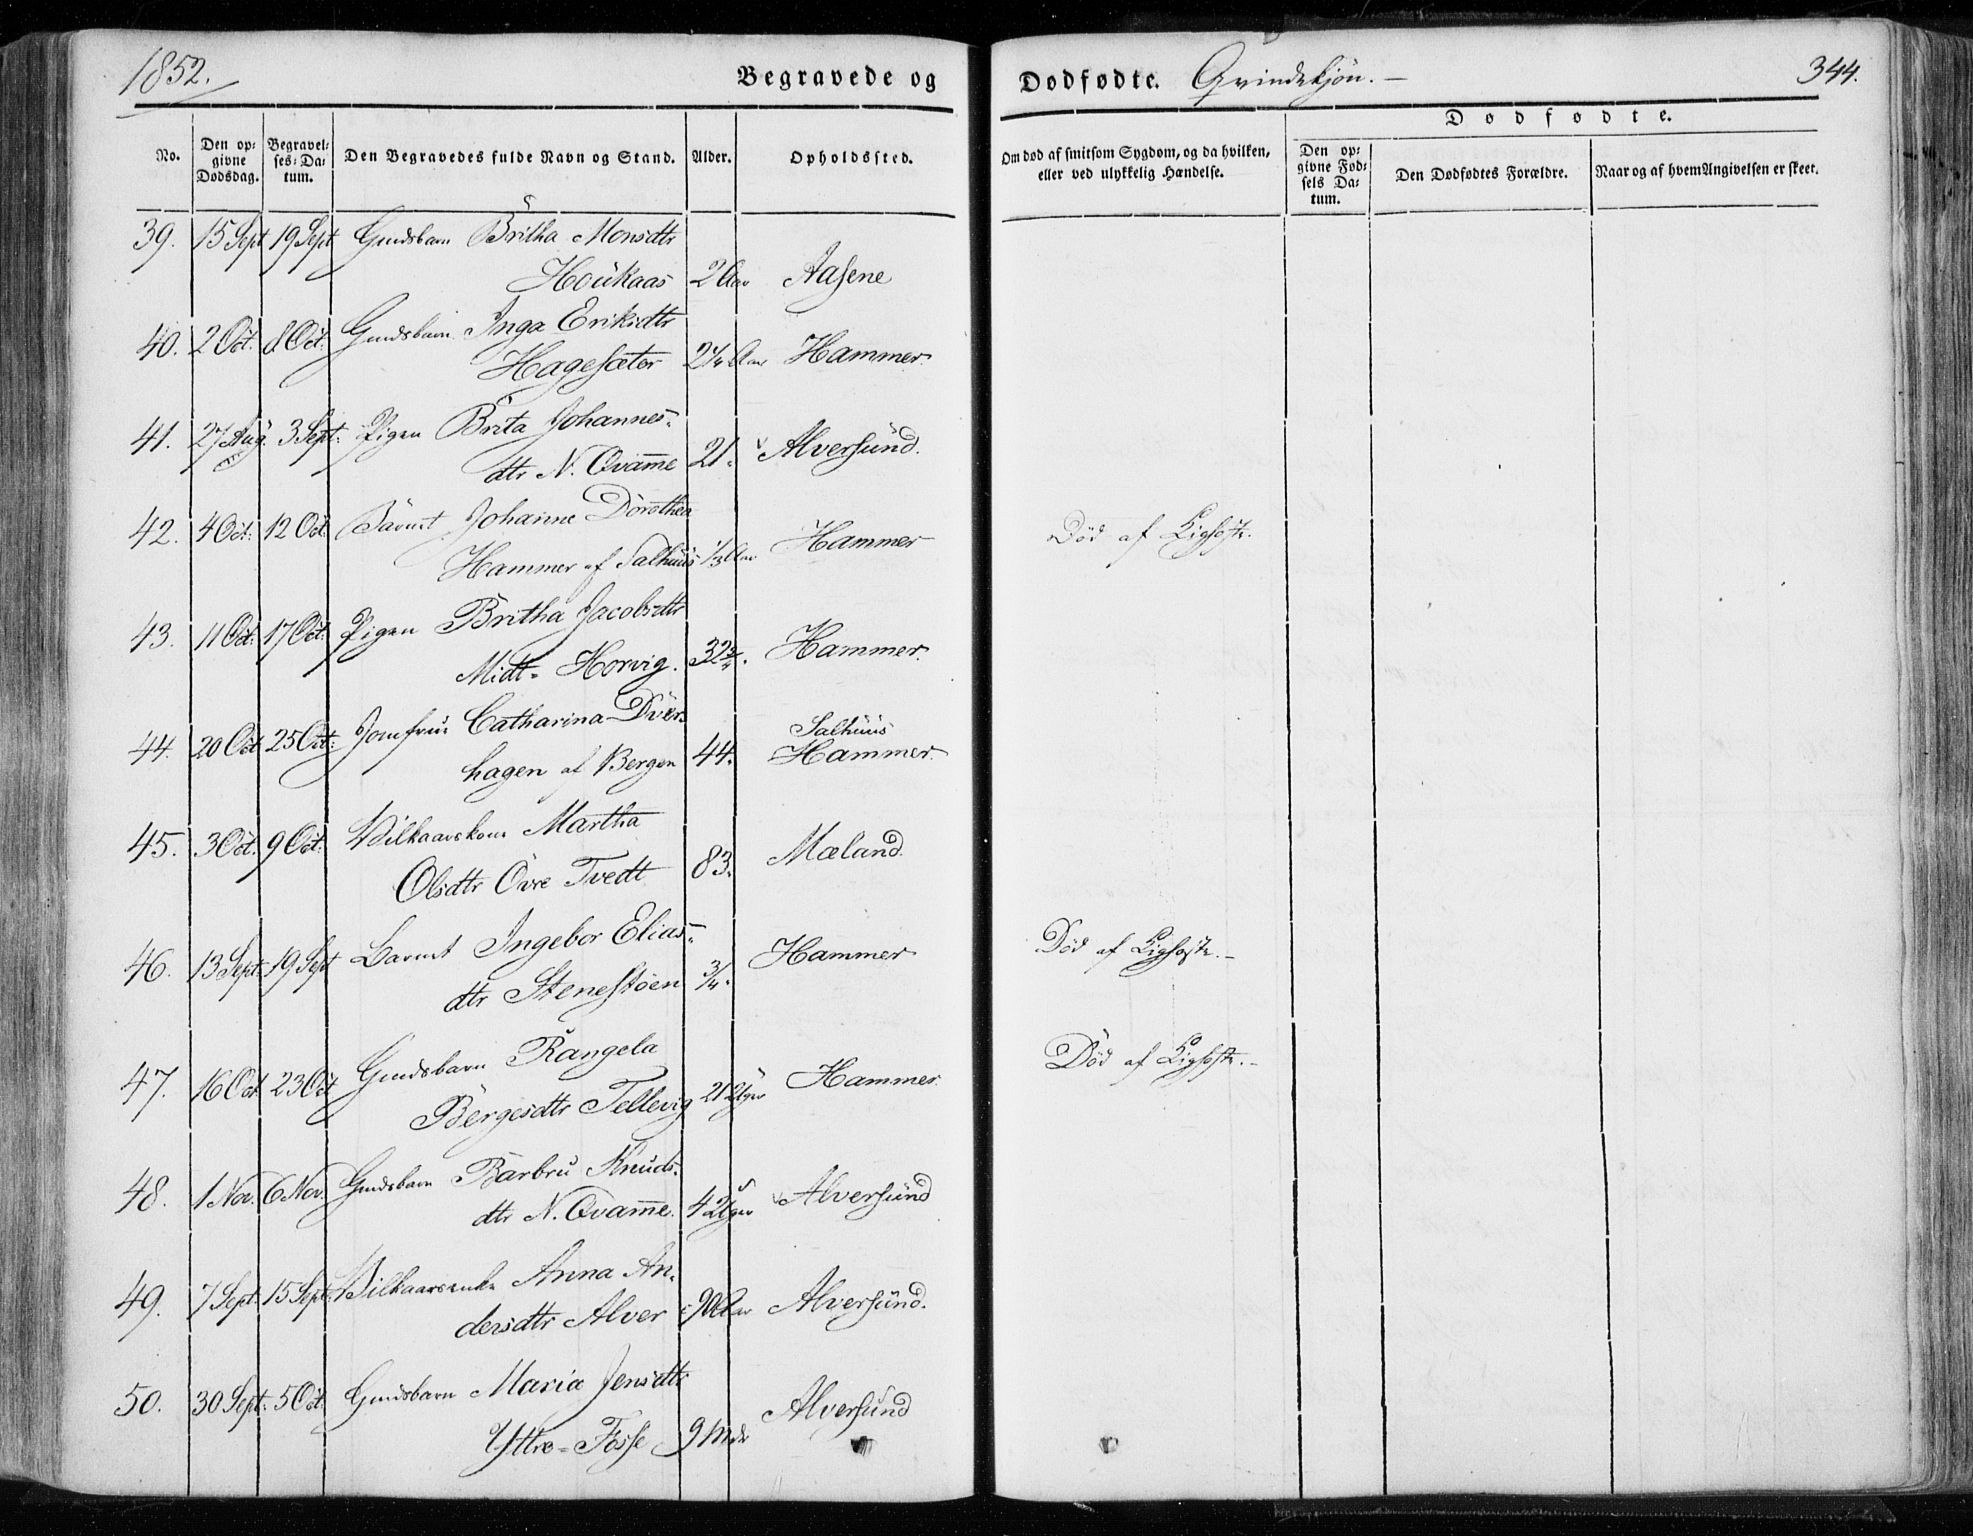 1852.
Begravede og
Dødfødte. Qvindekjön. —
344.
No.
Den op-
givne
Dødsdag.
Begravel-
ses-Da-
tum.
Den Begravedes fulde Navn og Stand.
Alder.
Opholdssted.
Om død af smitsom Sygdom, og da hvilken,
eller ved ulykkelig Hændelse.
Dødfødte.
Den op-
givne Fød-
sels Da-
tum.
Den Dødfødtes Forældre.
Naar og af hvem Angivelsen er skeet.
39. 15 Sept 19 Sept Gmdsbarn Britha Monsdtr
Houkaas 2 Aar Aasene
40. 2 Oct. 8 Oct. Gmdsbarn Inga Eriksdtr
Hagesæter 2 1/4 Aar Hammer.
41. 27 Aug. 3 Sept. Pigen Brita Johannes-
dtr N. Qvamme 21. Alversund.
42. 4 Oct. 12 Oct. Barnet Johanne Dorothea
Hammer af Salhuus 1/3 Aar Hammer Död af Kighoste.
43. 11 Oct. 17 Oct. Pigen Britha Jacobsdtr
Midt-Horvig. 32 3/4. Hammer.
44. 20 Oct 25 Oct. Jomfrue Catharina Döer-
hagen af Bergen 44. Salhuus
Hammer.
45. 3 Oct. 9 Oct. Vilkaarskone Martha
Olsdtr Övre Tvedt 83. Mæland.
46. 13 Sept. 19 Sept Barnet Ingebor Elias-
dtr Stenestöen 3/4. Hammer Död af Kighoste. —
47. 16 Oct 23 Oct Gmdsbarn Rangela
Börgesdtr Tellevig 21 Uger Hammer. Död af Kighoste. —
48. 1 Nov. 6 Nov. Gmdsbarn Barbru Knuds-
dtr N. Qvamme. 4 Uger Alversund
49. 7 Sept. 15 Sept. Vilkaarsenke Anna An-
dersdtr Alver 90 Aar Alversund.
50. 30 Sept. 5 Oct. Gmdsbarn Maria Jensdtr
Yttre-Fosse 9 Mdr Alversund